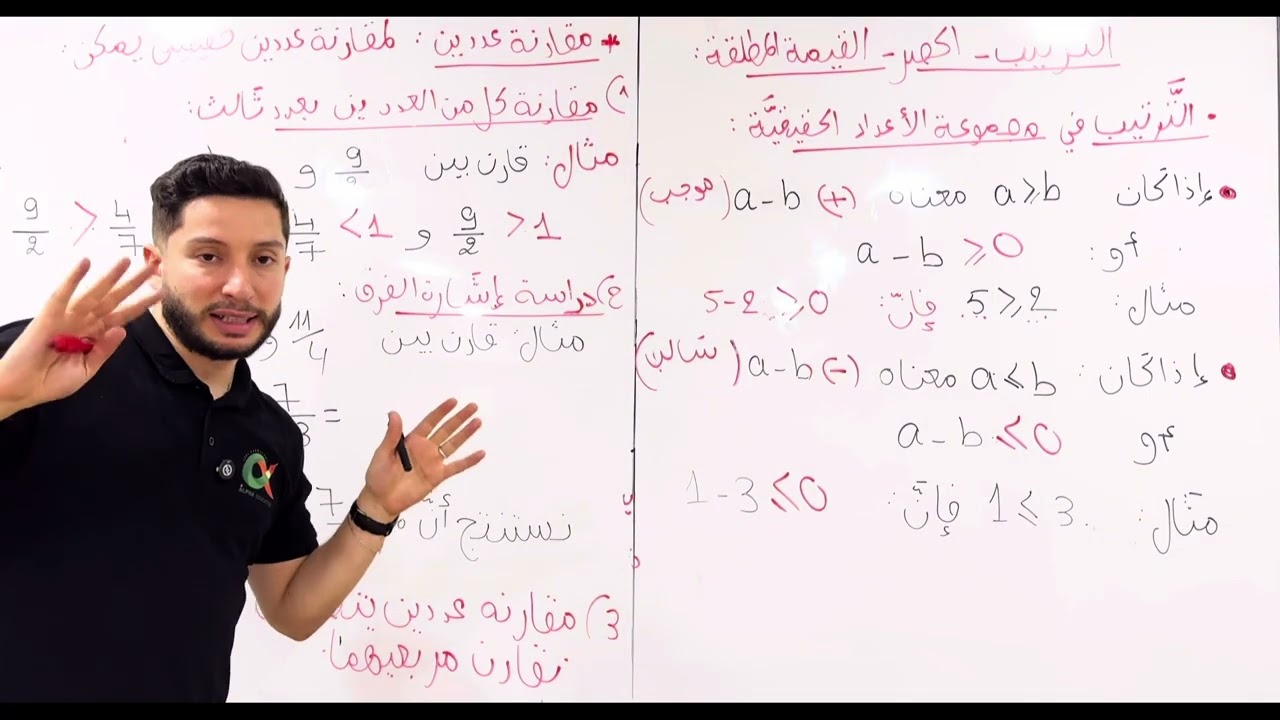 الترتيب - الحصر - القيمة المطلقة :
• التَّرتيب في مجموعة الأعداد الحقيقيَّة :
• إذا كان a ≥ b معناه (+) a-b (موجب)
أو : a - b ≥ 0
مثال : 5 ≥ 2 فإنّ : 5-2 ≥ 0
• إذا كان : a ≤ b معناه (-) a-b (سالب)
أو a - b ≤ 0
مثال : 1 ≤ 3 فإنّ : 1 - 3 ≤ 0
* مقارنة عددين : لمقارنة عددين حقيقيين يمكن :
1) مقارنة كل من العددين بعدد ثالث :
مثال : قارن بين 9/2 و
9/2 > 1 و 4/7 < 1
9/2 > 4/7
2) دراسة إشارة الفرق :
مثال قارن بين 11/4 و
= 7/3
نستنتج أن 7
3) مقارنة عددين
نقارن مربعيهما